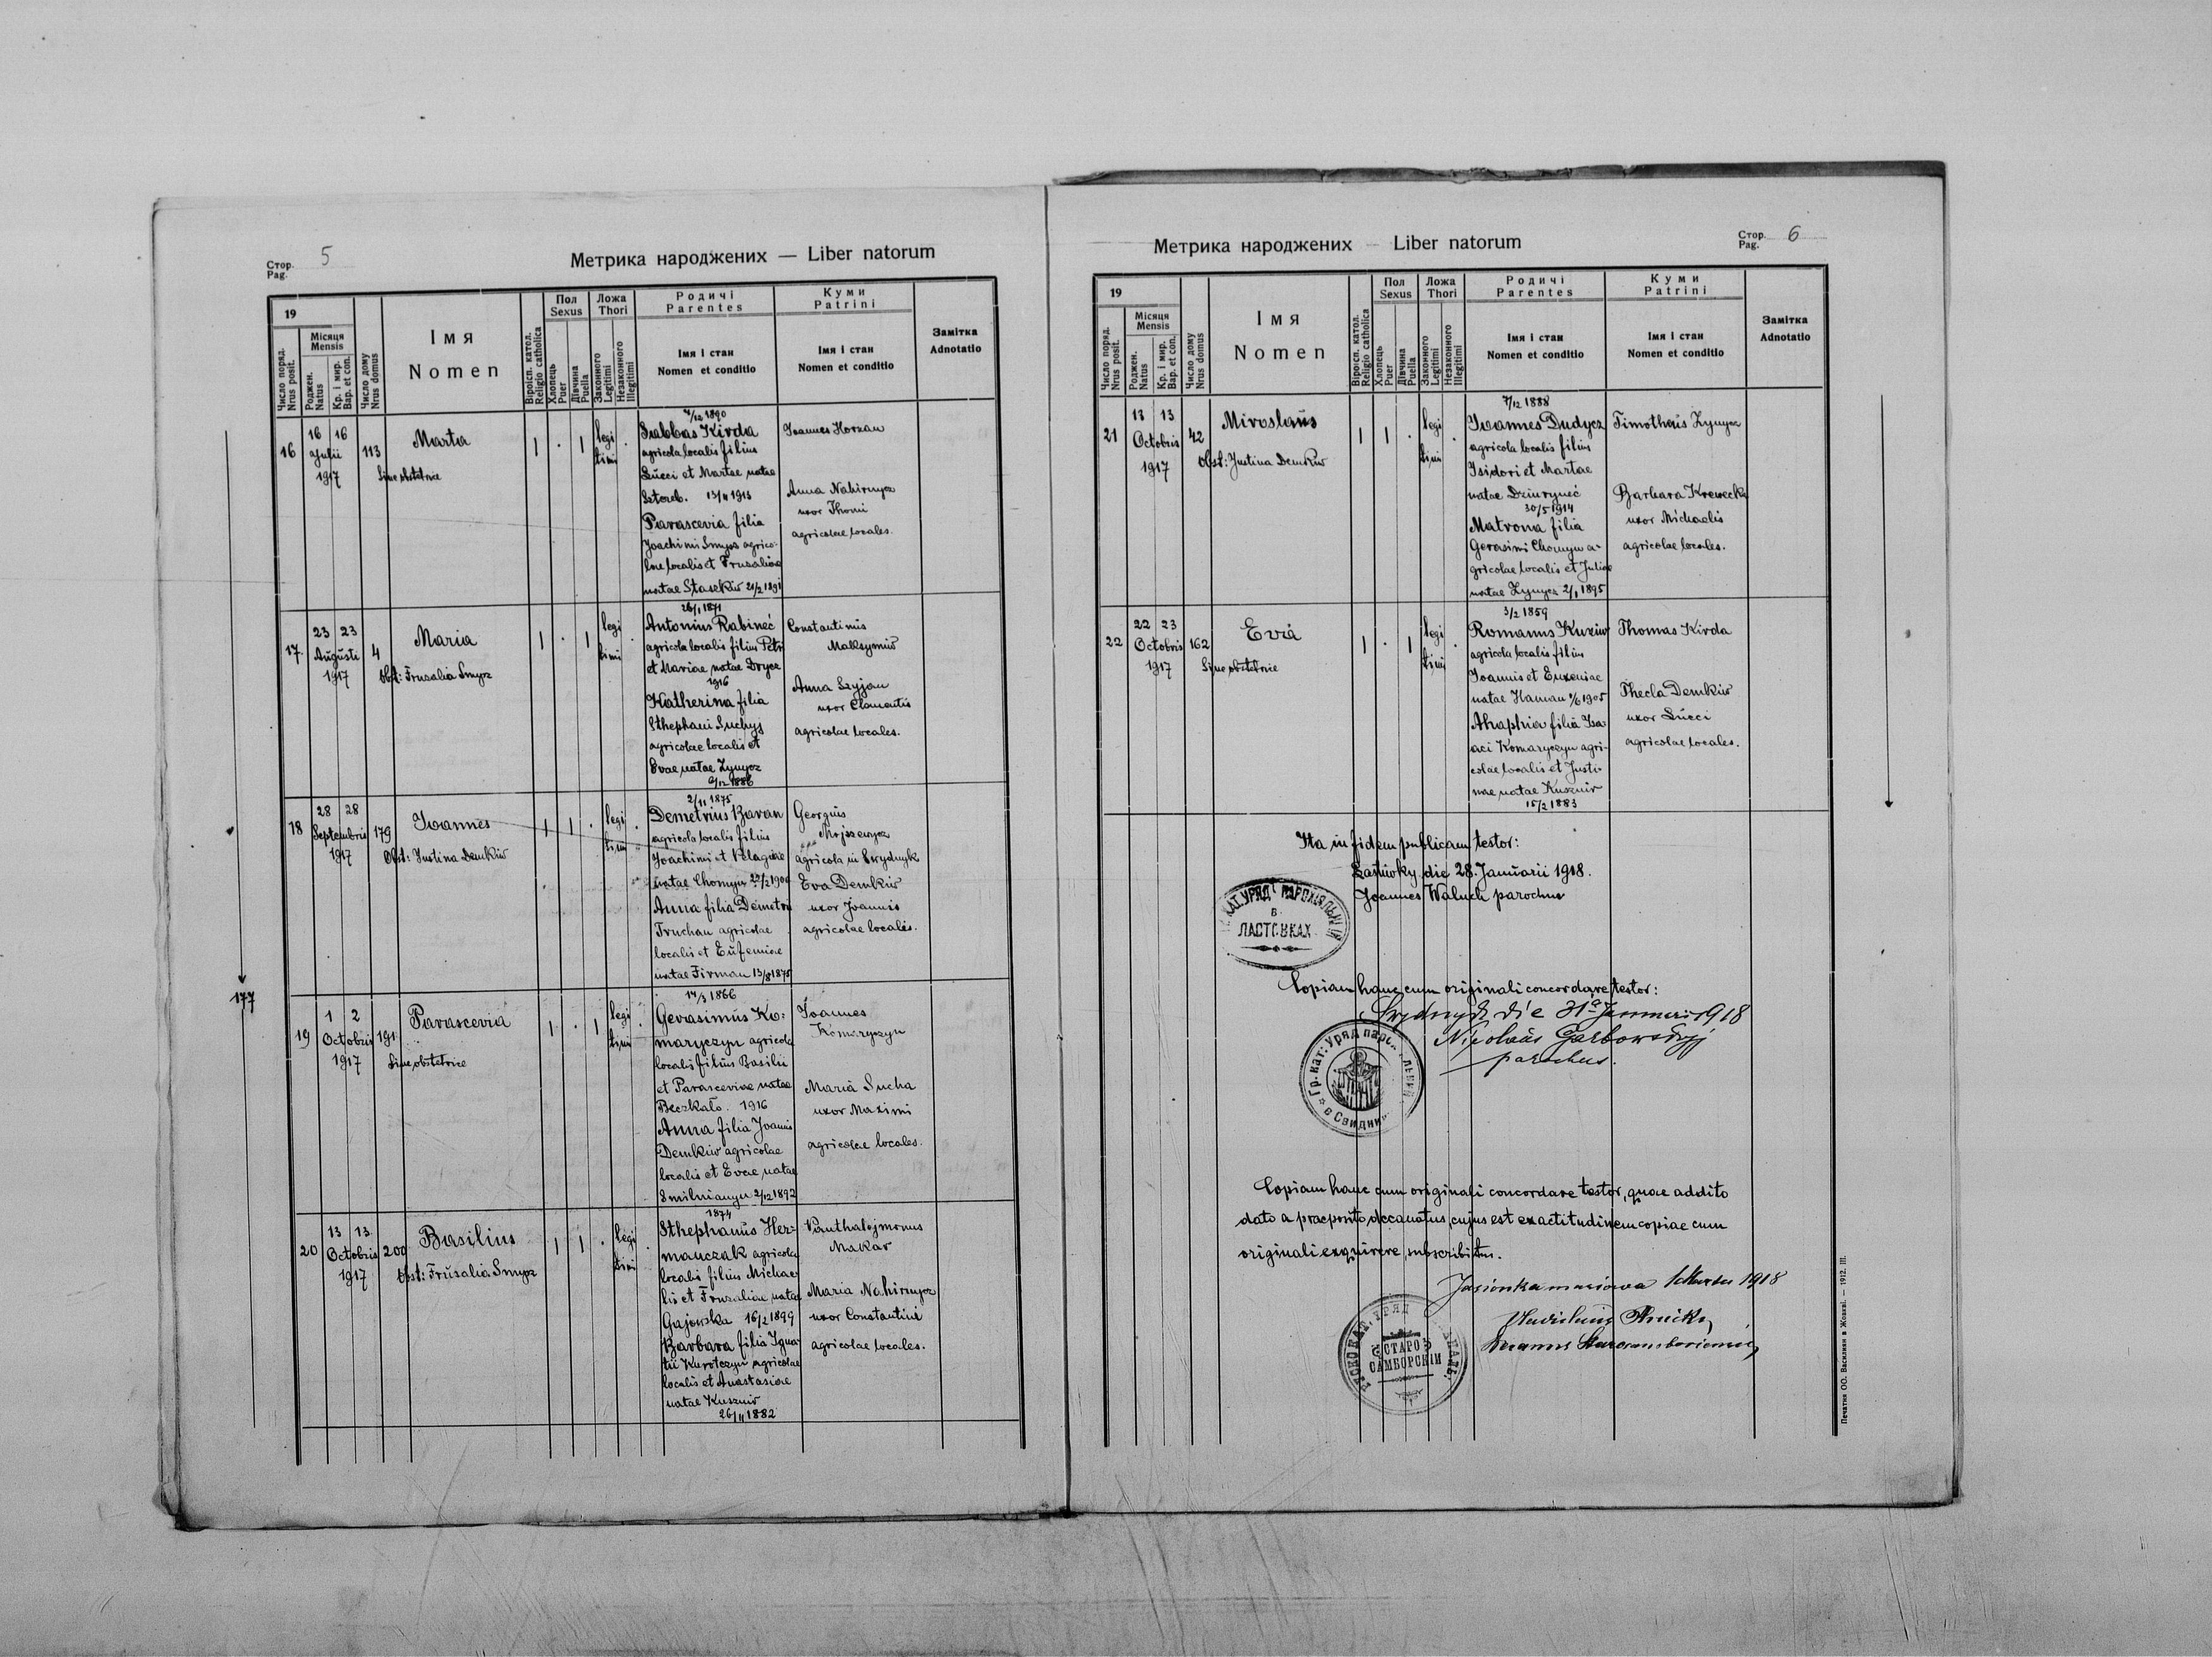 Стор.
Pag.
5
Метрика народжених — Liber natorum
19
Число поряд.
Nrus posit.
Місяця
Mensis
Роджен.
Natus
Кр. і мир.
Bap. et con.
Число дому
Nrus domus
Імя
Nomen
Віроісп. катол.
Religio catholica
Пол
Sexus
Хлопець
Puer
Дівчина
Puella
Ложа
Thori
Законного
Legitimi
Незаконного
Illegitimi
Родичі
Parentes
Імя і стан
Nomen et conditio
Куми
Patrini
Імя і стан
Nomen et conditio
Замітка
Adnotatio
16
16 16
Julii
1917
113
Marta
Sine obstetrice
1 . 1
legi
timi
7/12 1890
Sabbas Kirda
agricola localis filius
Lucci et Martae natae
13/11 1913
Parascevia filia
Joachimi Smycz agrico-
lae localis et Fruzaliae
natae Staśkiw 21/2 1891
Joannes Horzan
Anna Nahirnycz
uxor Thomi
agricolae locales.
17.
23 23
Augusti
1917
4
Maria
Obst: Fruzalia Smycz
1 . 1
legi
timi
26/1 1871
Antonius Rabineć
agricola localis filius Petri
et Mariae natae Drycz
1916
Katherina filia
Sthephani Suchyj
agricolae localis et
Evae natae Zynycz
9/12 1886
Constantinus
Maksymiw
Anna Szyjan
uxor Clementis
agricolae locales.
18
28 28
Septembris
1917
179
Joannes
Obst: Justina Demkiw
1 1 .
legi
timi
2/11 1875
Demetrius Baran
agricola localis filius
Joachimi et Pelagiae
natae Chomyn 22/2 1900
Anna filia Demetri
Truchan agricolae
localis et Eufemiae
natae Firman 13/8 1875
Georgius
agricola in Swydnyk
Eva Demkiw
uxor Joannis
agricolae locales.
177
19
1 2
Octobris
1917
191
Parascevia
Sine obstetrice
1 . 1
legi
timi
14/3 1866
Gerasimus Ko-
maryczyn agricola
localis filius Basilii
et Parasceviae natae
Beczkało. 1916
Anna filia Joannis
Demkiw agricolae
localis et Evae natae
Smilnianyn 2/12 1892
Joannes
Komaryczyn
Maria Sucha
uxor Maximi
agricolae locales.
20
13 13
Octobris
1917
200
Basilius
Obst: Fruzalia Smycz
1 1 .
legi
timi
1874
Sthephanus Her-
manczak agricola
localis filius Michae-
lis et Fruzaliae natae
Gajowska 16/2 1899
Barbara filia Igna-
tii Kurotczyn agricolae
localis et Anastasiae
natae Kuszniw
26/11 1882
Panthalejmonus
Makar
Maria Nahirnycz
uxor Constantini
agricolae locales.
Метрика народжених — Liber natorum
Стор.
Pag.
6
19
Число поряд.
Nrus posit.
Місяця
Mensis
Роджен.
Natus
Кр. і мир.
Bap. et con.
Число дому
Nrus domus
Імя
Nomen
Віроісп. катол.
Religio catholica
Пол
Sexus
Хлопець
Puer
Дівчина
Puella
Ложа
Thori
Законного
Legitimi
Незаконного
Illegitimi
Родичі
Parentes
Імя і стан
Nomen et conditio
Куми
Patrini
Імя і стан
Nomen et conditio
Замітка
Adnotatio
21
13 13
Octobris
1917
42
Miroslaus
Obst: Justina Demkiw
1 1 .
legi
timi
7/12 1888
Joannes Dudycz
agricola localis filius
Isidori et Martae
natae Dziuryneć
30/5 1914
Matrona filia
Gerasimi Chomyn a-
gricolae localis et Juliae
natae Zynycz 2/1 1895
Timotheus Zynycz
Barbara Krewecka
uxor Michaelis
agricolae locales.
22
22 23
Octobris
1917
162
Eva
Sine obstetrice
1 . 1
legi
timi
3/2 1859
Romanus Kuziw
agricola localis filius
Joannis et Euxeniae
natae Haman 1/6 1905
Ahaphia filia Isa-
aci Komaryczyn agri-
colae localis et Justi-
nae natae Kuszniw
15/2 1883
Thomas Kirda
Thecla Demkiw
uxor Lucci
agricolae locales.
Ita in fidem publicam testor:
Łastiwky die 28. Januarii 1918.
Joannes Waluch parochus
КАТ. УРЯД ПАРОХІЯЛЬНИЙ
В
ЛАСТІВКАХ
Copiam hanc cum originali concordare testor:
Swydnyk die 31ª Januarii 1918
Nicolaus Garbowskyj
parochus.
Гр. кат. Уряд
в Свидни
Copiam hanc cum originali concordare testor, quae addito
dato a praeposito decanatus, cujus est exactitudinem copiae cum
originali exquirere, subscribitur.
Jasionka masiowa 1 Martii 1918
УРЯД
СТАРО
САМБОРСКІЙ
Печатня ОО. Василиян в Жовкві. — 1912. III.